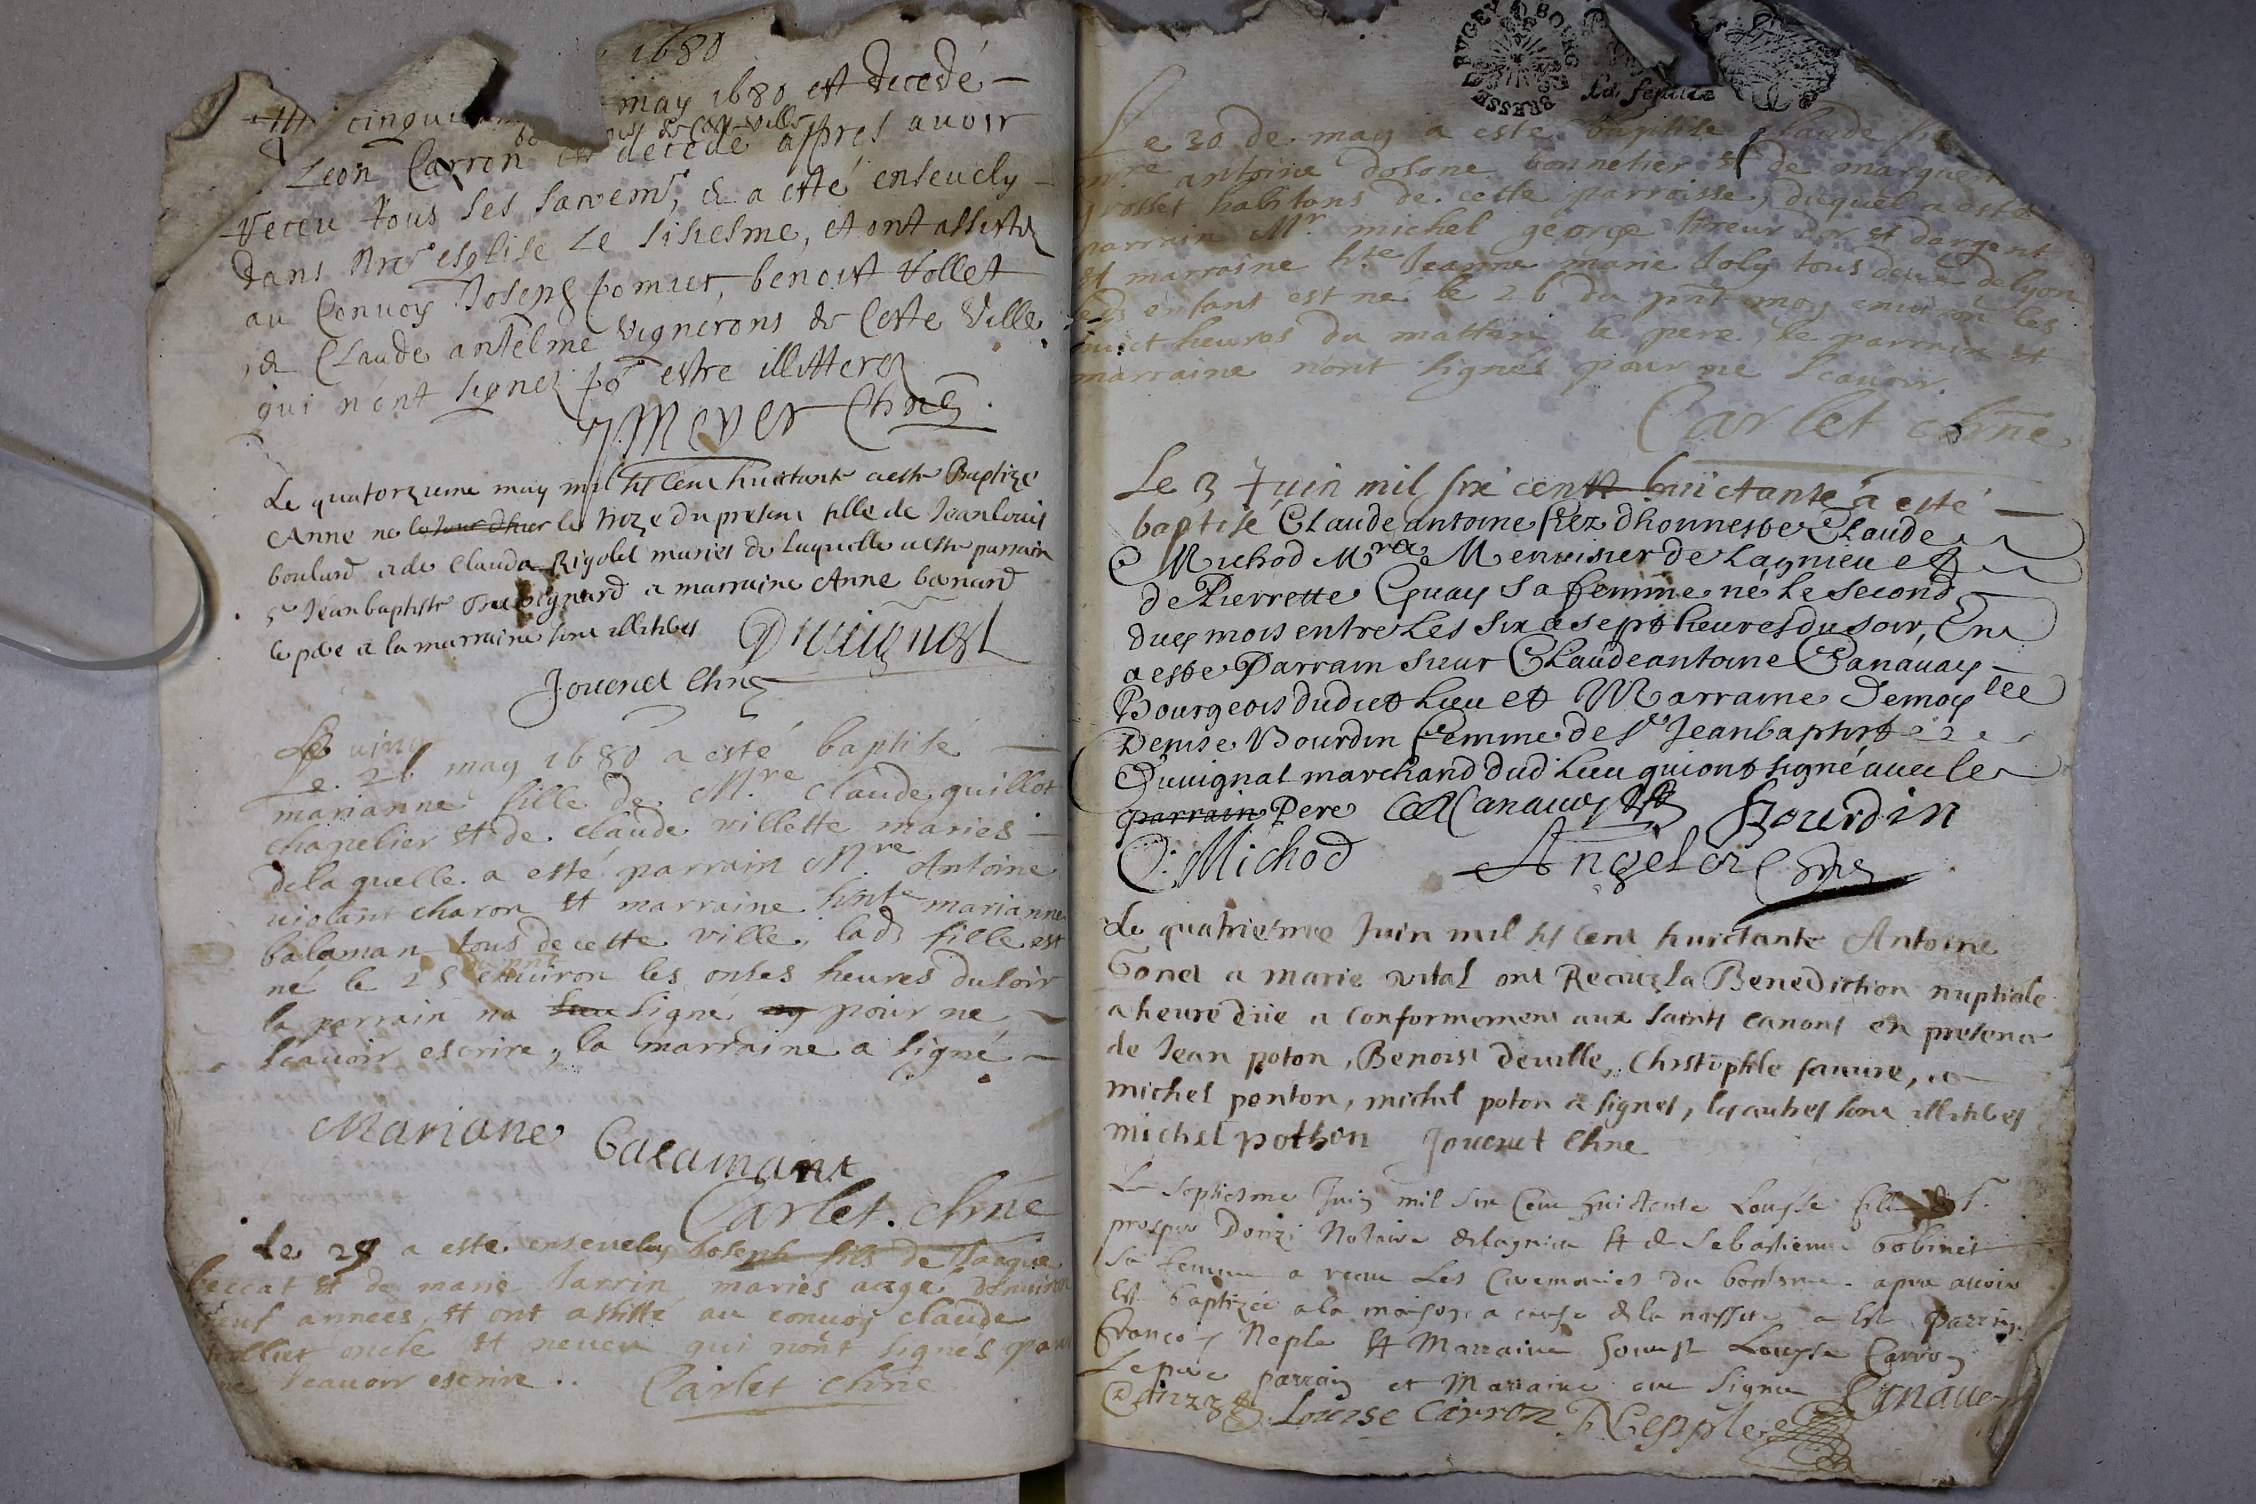 1680
cinquiesme may 1680 est decedé
Leon Carron est decedé appres avoir
receu tous ses sacrem.s, & a esté ensevely
dans nre esglise le sixiesme, et ont assistez
au Convoy Joseph pomiet, benoist Vollet
& Claude antelme vignerons de Ceste Ville
qui n'ont signez po.r estre illitterez
Meyer Chne
Le quatorzieme may mil six cent huictante a este Baptize
Anne ne le jour dhier le treze du present fille de Jean Louis
boulard et de Clauda Rigolet maries de laquelle a este parrain
s.r Jean baptiste Druvignard et marraine Anne benard
le pere et la marraine sont illitibes
Jouenet Chne
Le vingt
Le 26 may 1680 a esté baptisé
marianne fille de M.re Claude guillot
chapelier et de claude villette mariés
de la quelle a esté parrain M.re Antoine
violant charon et marraine hnte marianne
balaman tous de cette ville, lad fille est
né le 25 environ les onses heures du soir
le parrain na signé pour ne
scavoir escrire, la marraine a signé
Mariane Balamant
Carlet chne
Le 29 a este ensevely Joseph fils de Jacque
beccat et de marie Jarrin mariés aagé denviron
neuf années, et ont assisté au convoy claude
oncle et neveu qui nont signés pour
ne scavoir escrire.. Carlet chne
BRESSE BUGEY BOURG
Le 30 de may a esté baptisé Claude
antoine dosone bonnetier et de
grosset habitans de cette parroisse, duquel a esté
parrain M.r michel george tireur dor et dargent
et marraine h.te Jeanne marie Joly tous deux de lyon
led enfant est né le 26 du pnt moy environ les
huict heures du mattin le pere, le parrain et
marraine nont signés pour ne scavoir.
Carlet chne
Le 3 Juin mil six cent huictante a esté
baptisé Claude antoine filz dhonneste Claude
Michod M.re Menuisier de Lagnieu et
de Pierrette Guay sa femme né le second
duq mois entre les six a sept heures du soir, En
a este Parrain sieur Claude antoine Canavay
Bourgeois dudict lieu et Marraine Demoy.lle
Denise Bourdin femme de s.r Jean baptiste
Duvignat marchand dud lieu qui ont signé avec le
parrain Pere Canavay Bourdin
C. Michod Chne
Le quatriesme Juin mil six cent huictante Antoine
Gonet et marie vital ont Receus la Benediction nuptiale
a heure düe et conformement aux saints canons en presence
de Jean poton, Benoist deville, Christophle favure, et
michel ponton, michel poton a signes, les autres sont illitibes
michel pothon Jouenet Chne
Le septiesme Juin mil six Cent huictante Louyse fille de s.r
prosper Donzi Notaire de lagnieu et de Sebastienne Gobinet
sa femme a receu les Ceremonies du bastesme apres avoir
Este baptizée a la maison a cause de la nessite a este Parrin
Francois Neple et Marraine honeste Louyse Carron
Le pere parrain et Marraine ont signe
Louise Carron